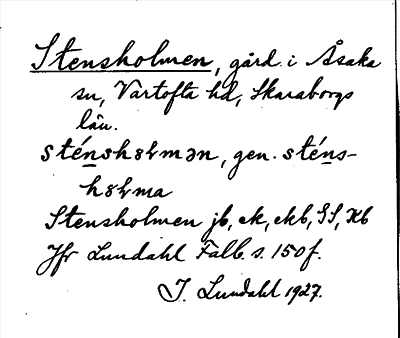 Stensholmen, gård i Åsaka
sn, Vartofta hd, Skaraborgs
län.
sténshɷlmən, gen. sténs-
hɷlma
Stensholmen jb, ek, ekb, GS, Kb
Jfr Lundahl Falb. s. 150 f.
I. Lundahl 1927.